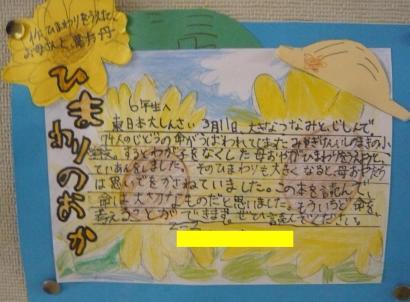 作 ひまわりをうえた
お母さんと
ひまわりのおか
6年生へ
東日本大しんさい 3月11日、大きなつなみと、じしんで
74人のじどうの命がうばわれてしまった みやぎけんいしのまき市の小
学校。するとわが子をなくした母おやがひまわりをうえようと
ていあんをしました。そのひまわりも大きくなると、母おやたち
は思いでをかさねていました。この本を読んで
命は大切なものだと思いました。もういちど命を
考えることができます。ぜひ読んでください。